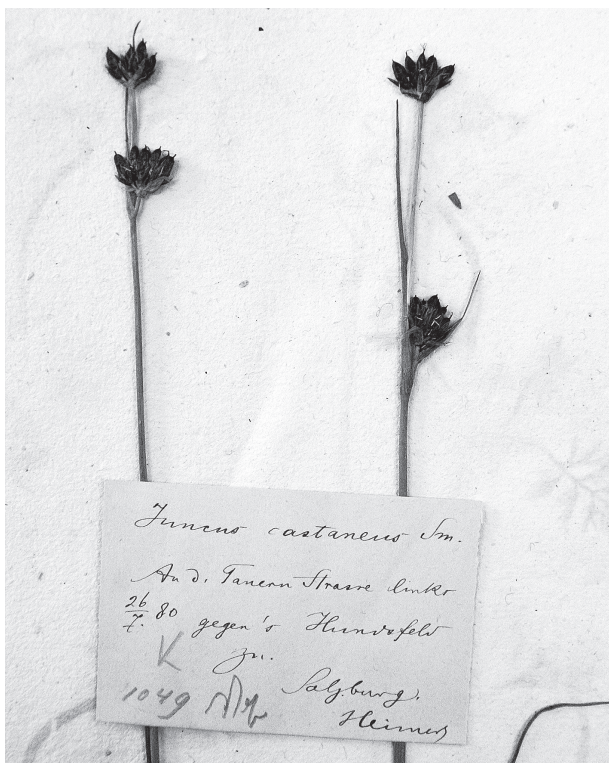 Juncus castaneus Sm.
An d. Tauern Strasse links
26/7. 80 gegen's Hundsfeld
zu.
K
Salzburg.
1049
Heimerl